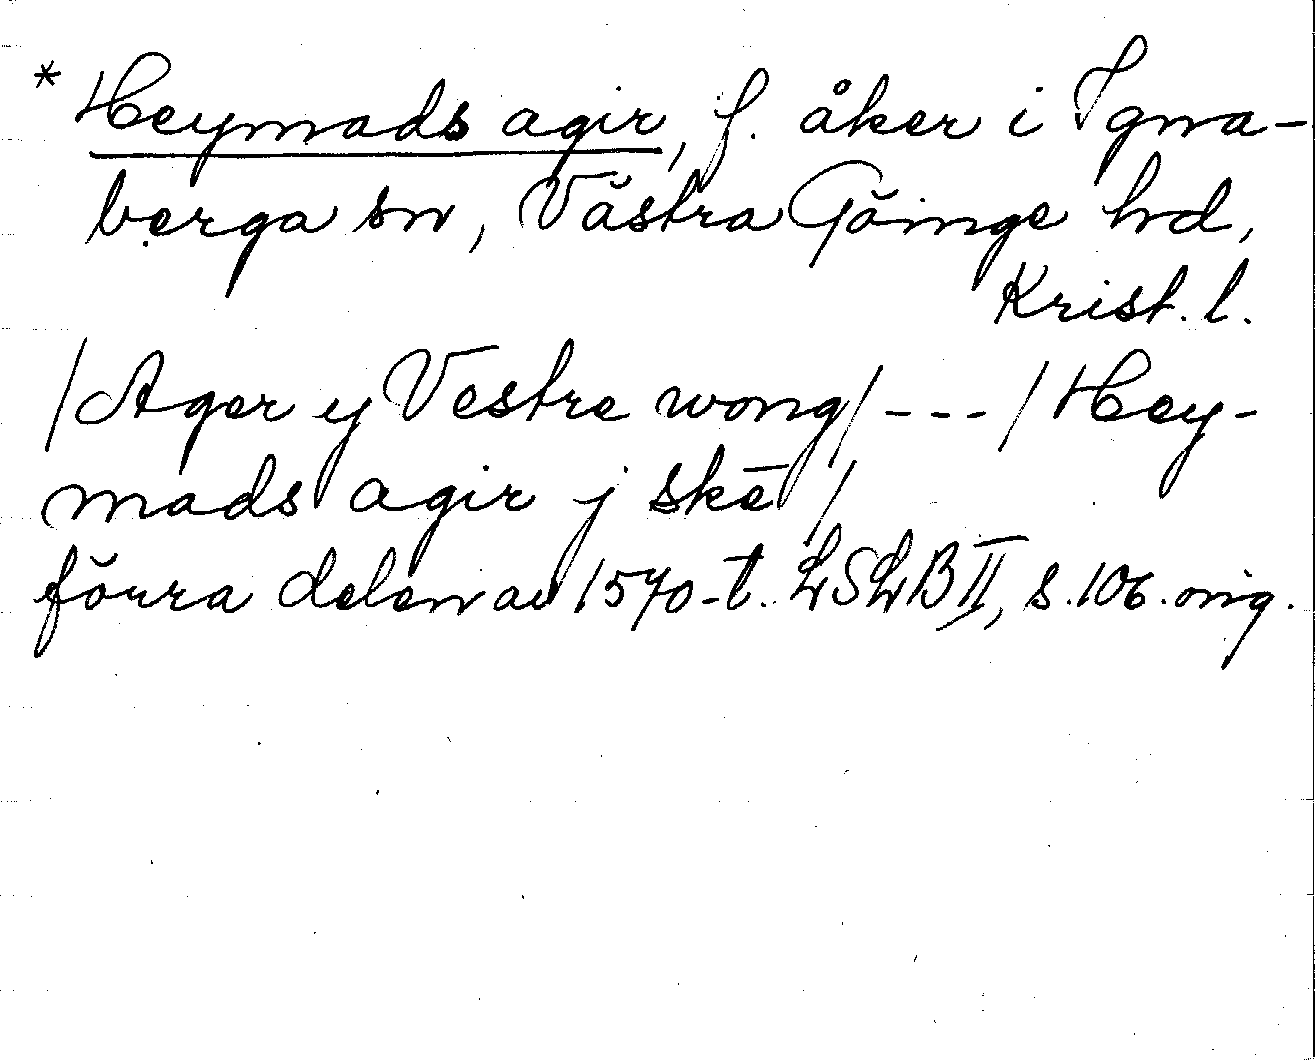 * Heymads agir, f. åker i Igna-
berga sn, Västra Göinge hd,
Krist. l.
/Ager y Vestre wong/ --- / Hey-
mads agir j skē /
förra delen av 1570-t. LSLB II, s. 106. orig.